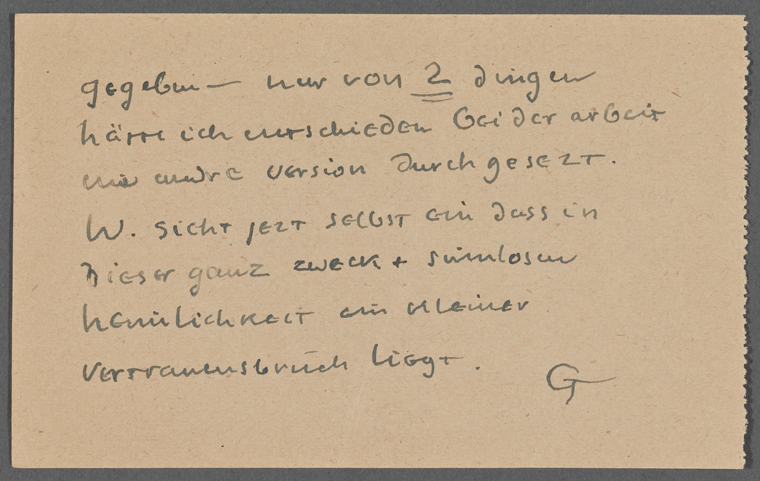 gegeben — nur von 2 dingen
hätte ich entschieden bei der arbeit
eine andre version durchgesezt.
W. sieht jezt selbst ein dass in
dieser ganz zweck + sinnlosen
heimlichkeit ein kleiner
vertrauensbruch liegt.
G